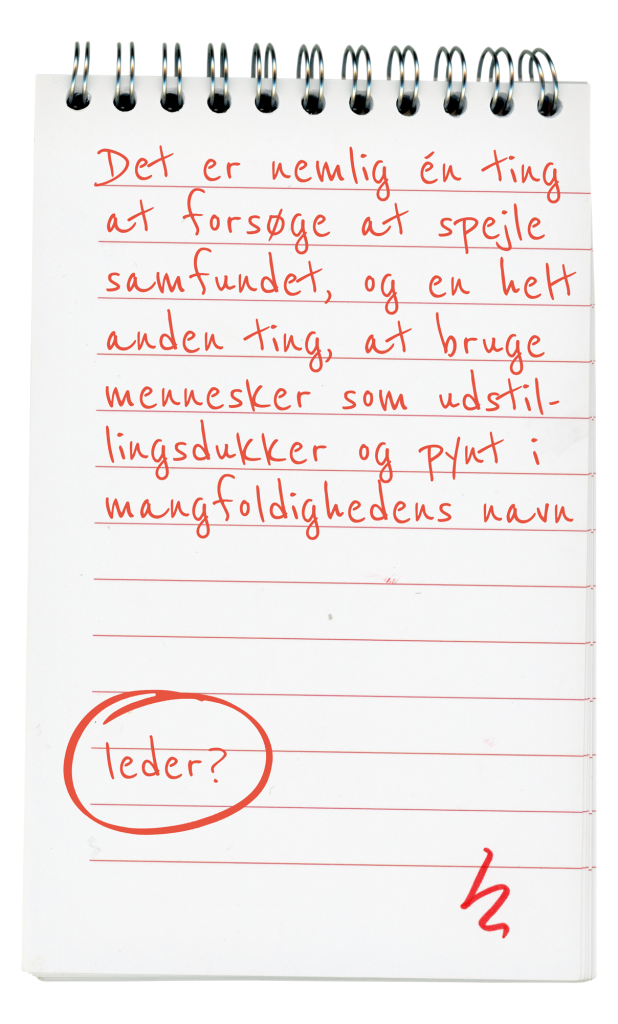 Det er nemlig én ting
at forsøge at spejle
samfundet, og en helt
anden ting, at bruge
mennesker som udstil-
lingsdukker og pynt i
mangfoldighedens navn
leder?